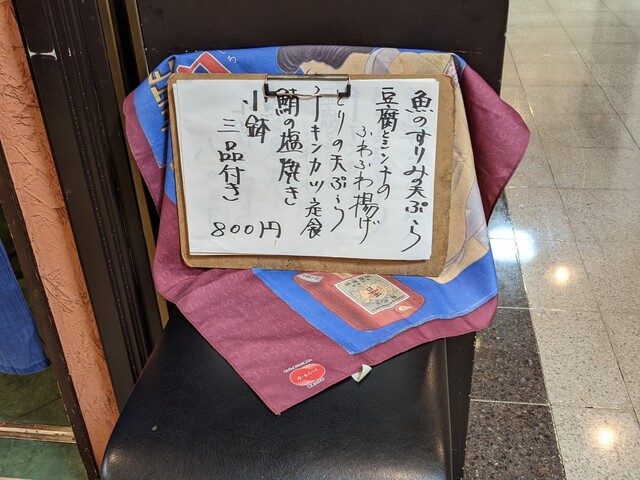 魚のすりみの天ぷ〜ら
豆腐とミンチの
ふわふわ揚げ
とりの天ぷ〜ら
チキンカツ定食
鯖の塩焼き
小鉢
三品付き
800円